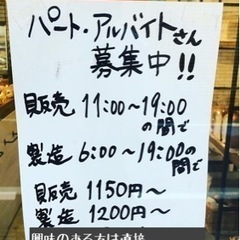 パート・アルバイトさん
募集中!!
販売 11:00~19:00
の間で
製造 6:00~19:00の
間で
販売 1150円~
製造 1200円~
興味のある方は直接